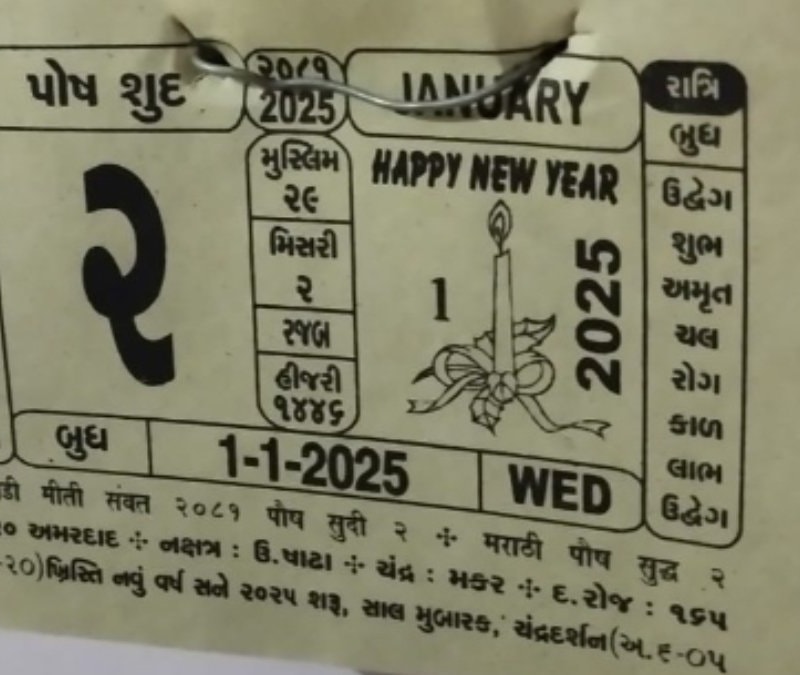 પોષ શુદ
૨૦૮૧
2025
JANUARY
૨
મુસ્લિમ
૨૯
મિસરી
૨
રજબ
હીજરી
૧૪૪૬
HAPPY NEW YEAR
1
2025
રાત્રિ
બુધ
ઉદ્વેગ
શુભ
અમૃત
ચલ
રોગ
કાળ
લાભ
ઉદ્વેગ
બુધ
1-1-2025
WED
मीती संवत २०८१ पौष सुदी २ ✢ मराठी पौष सुद्ध २
અમરદાદ ✢ નક્ષત્ર : ઉ.ષાઢા ✢ ચંદ્ર : મકર ✢ દ.રોજ : ૧૬૫
-૨૦)ખ્રિસ્તિ નવું વર્ષ સને ૨૦૨૫ શરૂ, સાલ મુબારક, ચંદ્રદર્શન(અ.૬-૦૫